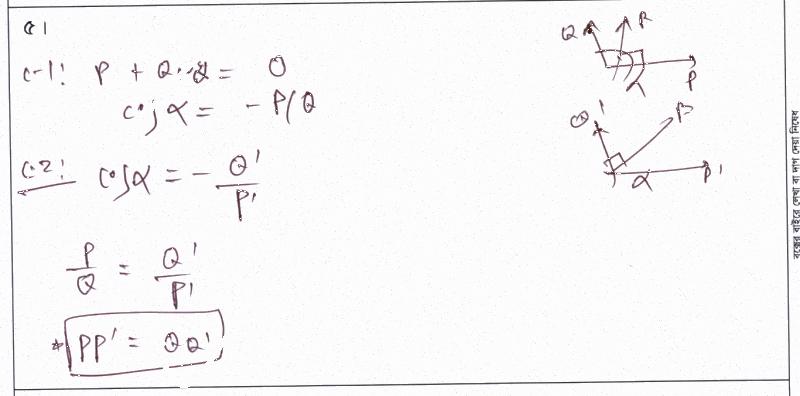 ৫।
C-1: P + Q cos α = 0
cos α = - P/Q
C-2: cos α = - Q'/P'
P/Q = Q'/P'
* PP' = QQ'
Q R
P
Q' R
α P'
বক্সের বাইরে লেখা বা দাগ দেয়া নিষেধ